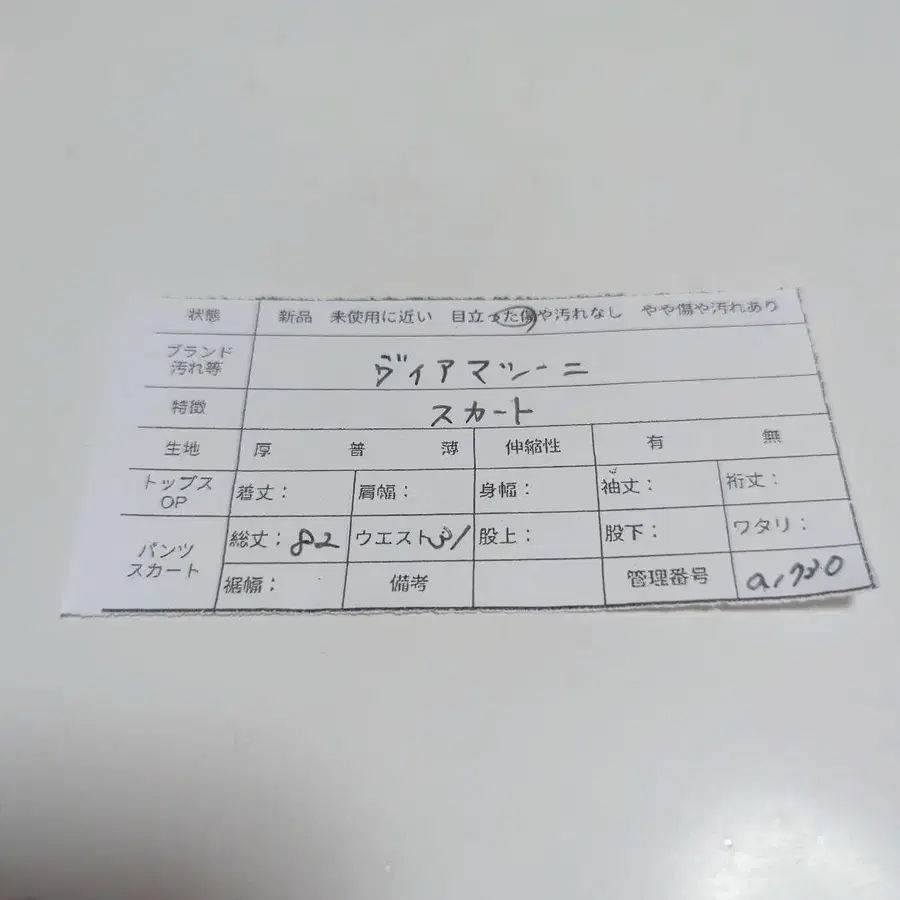 状態 新品 未使用に近い 目立った傷や汚れなし やや傷や汚れあり
ブランド
汚れ等 ヴィアマツーニ
特徴 スカート
生地 厚 普 薄 伸縮性 有 無
トップス
OP 着丈： 肩幅： 身幅： 袖丈： 裄丈：
パンツ
スカート 総丈：82 ウエスト31 股上： 股下： ワタリ：
裾幅： 備考 管理番号